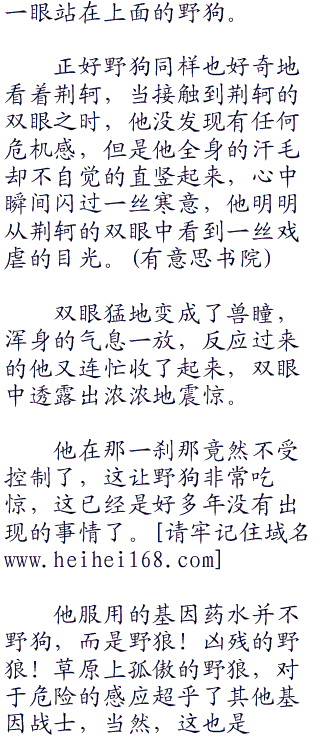 一眼站在上面的野狗。
正好野狗同样也好奇地
看着荆轲，当接触到荆轲的
双眼之时，他没发现有任何
危机感，但是他全身的汗毛
却不自觉的直竖起来，心中
瞬间闪过一丝寒意，他明明
从荆轲的双眼中看到一丝戏
虐的目光。(有意思书院)
双眼猛地变成了兽瞳，
浑身的气息一放，反应过来
的他又连忙收了起来，双眼
中透露出浓浓地震惊。
他在那一刹那竟然不受
控制了，这让野狗非常吃
惊，这已经是好多年没有出
现的事情了。[请牢记住域名
www.heihei168.com]
他服用的基因药水并不
野狗，而是野狼！凶残的野
狼！草原上孤傲的野狼，对
于危险的感应超乎了其他基
因战士，当然，这也是